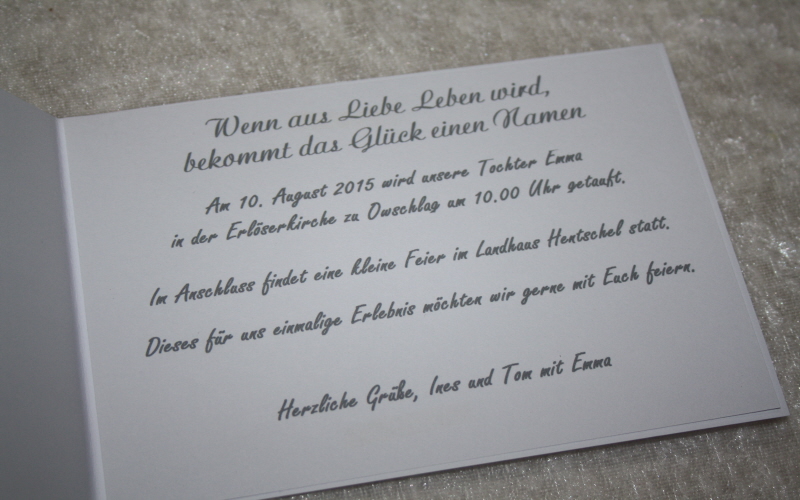 Wenn aus Liebe Leben wird,
bekommt das Glück einen Namen
Am 10. August 2015 wird unsere Tochter Emma
in der Erlöserkirche zu Owschlag um 10.00 Uhr getauft.
Im Anschluss findet eine kleine Feier im Landhaus Hentschel statt.
Dieses für uns einmalige Erlebnis möchten wir gerne mit Euch feiern.
Herzliche Grüße, Ines und Tom mit Emma